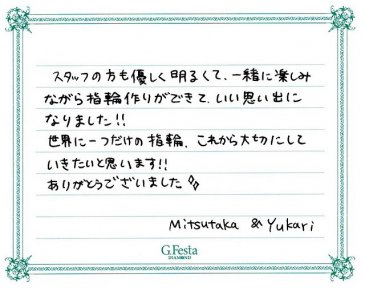 スタッフの方も優しく明るくて、一緒に楽しみ
ながら指輪作りができて、いい思い出に
なりました!!
世界に一つだけの指輪、これから大切にして
いきたいと思います!!
ありがとうございました
Mitsutaka & Yukari
G.Festa
DIAMOND